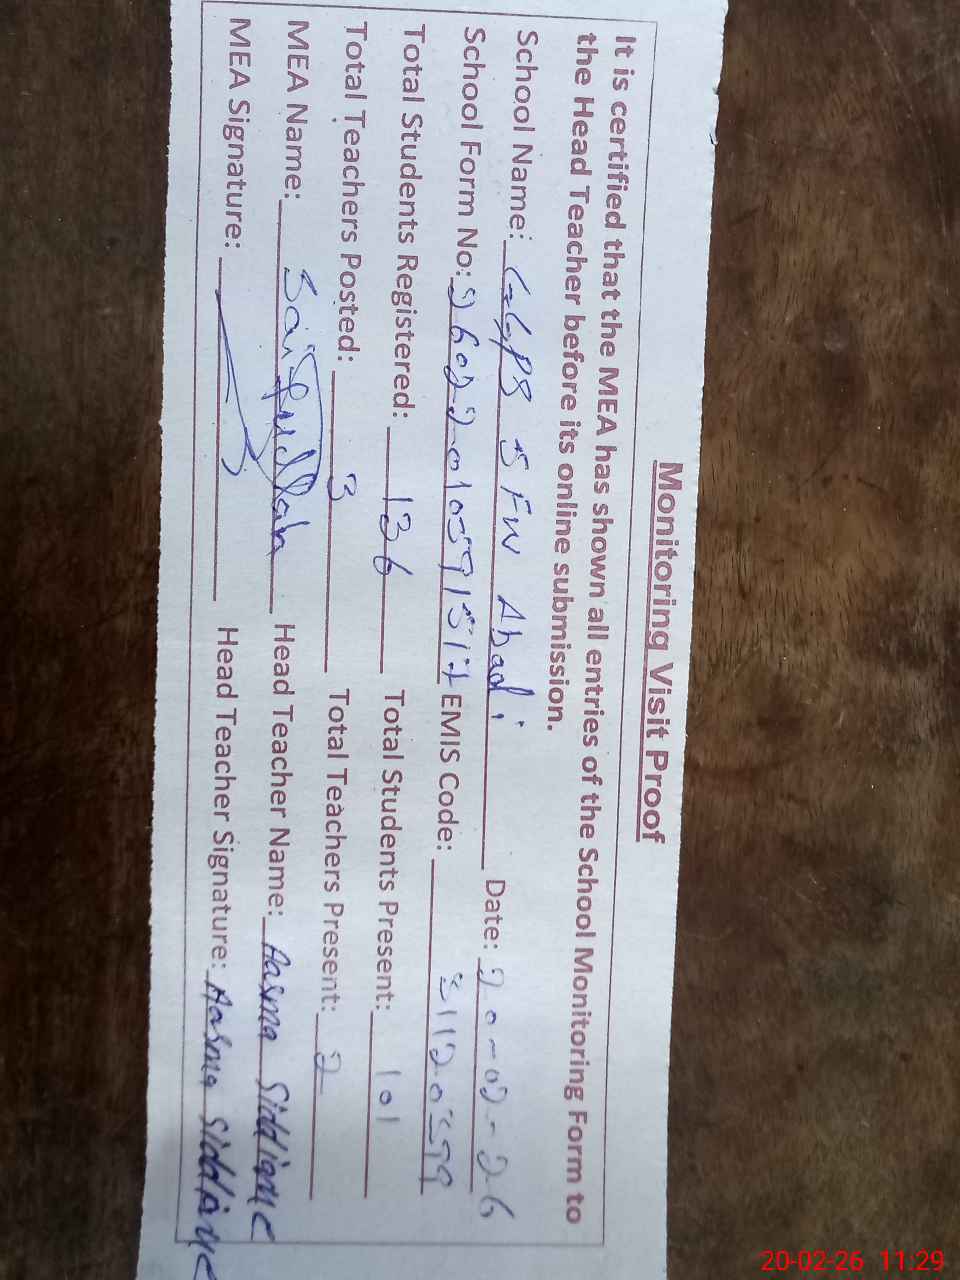 Monitoring Visit Proof
It is certified that the MEA has shown all entries of the School Monitoring Form to
the Head Teacher before its online submission.
School Name: GGPS 5 FW Abadi Date: 20-02-26
School Form No: EMIS Code:
Total Students Registered: 136 Total Students Present: 101
Total Teachers Posted: 3 Total Teachers Present: 2
MEA Name: Saifullah Head Teacher Name: Aasma Siddique
MEA Signature: Head Teacher Signature: Aasma Siddique
20-02-26 11:29